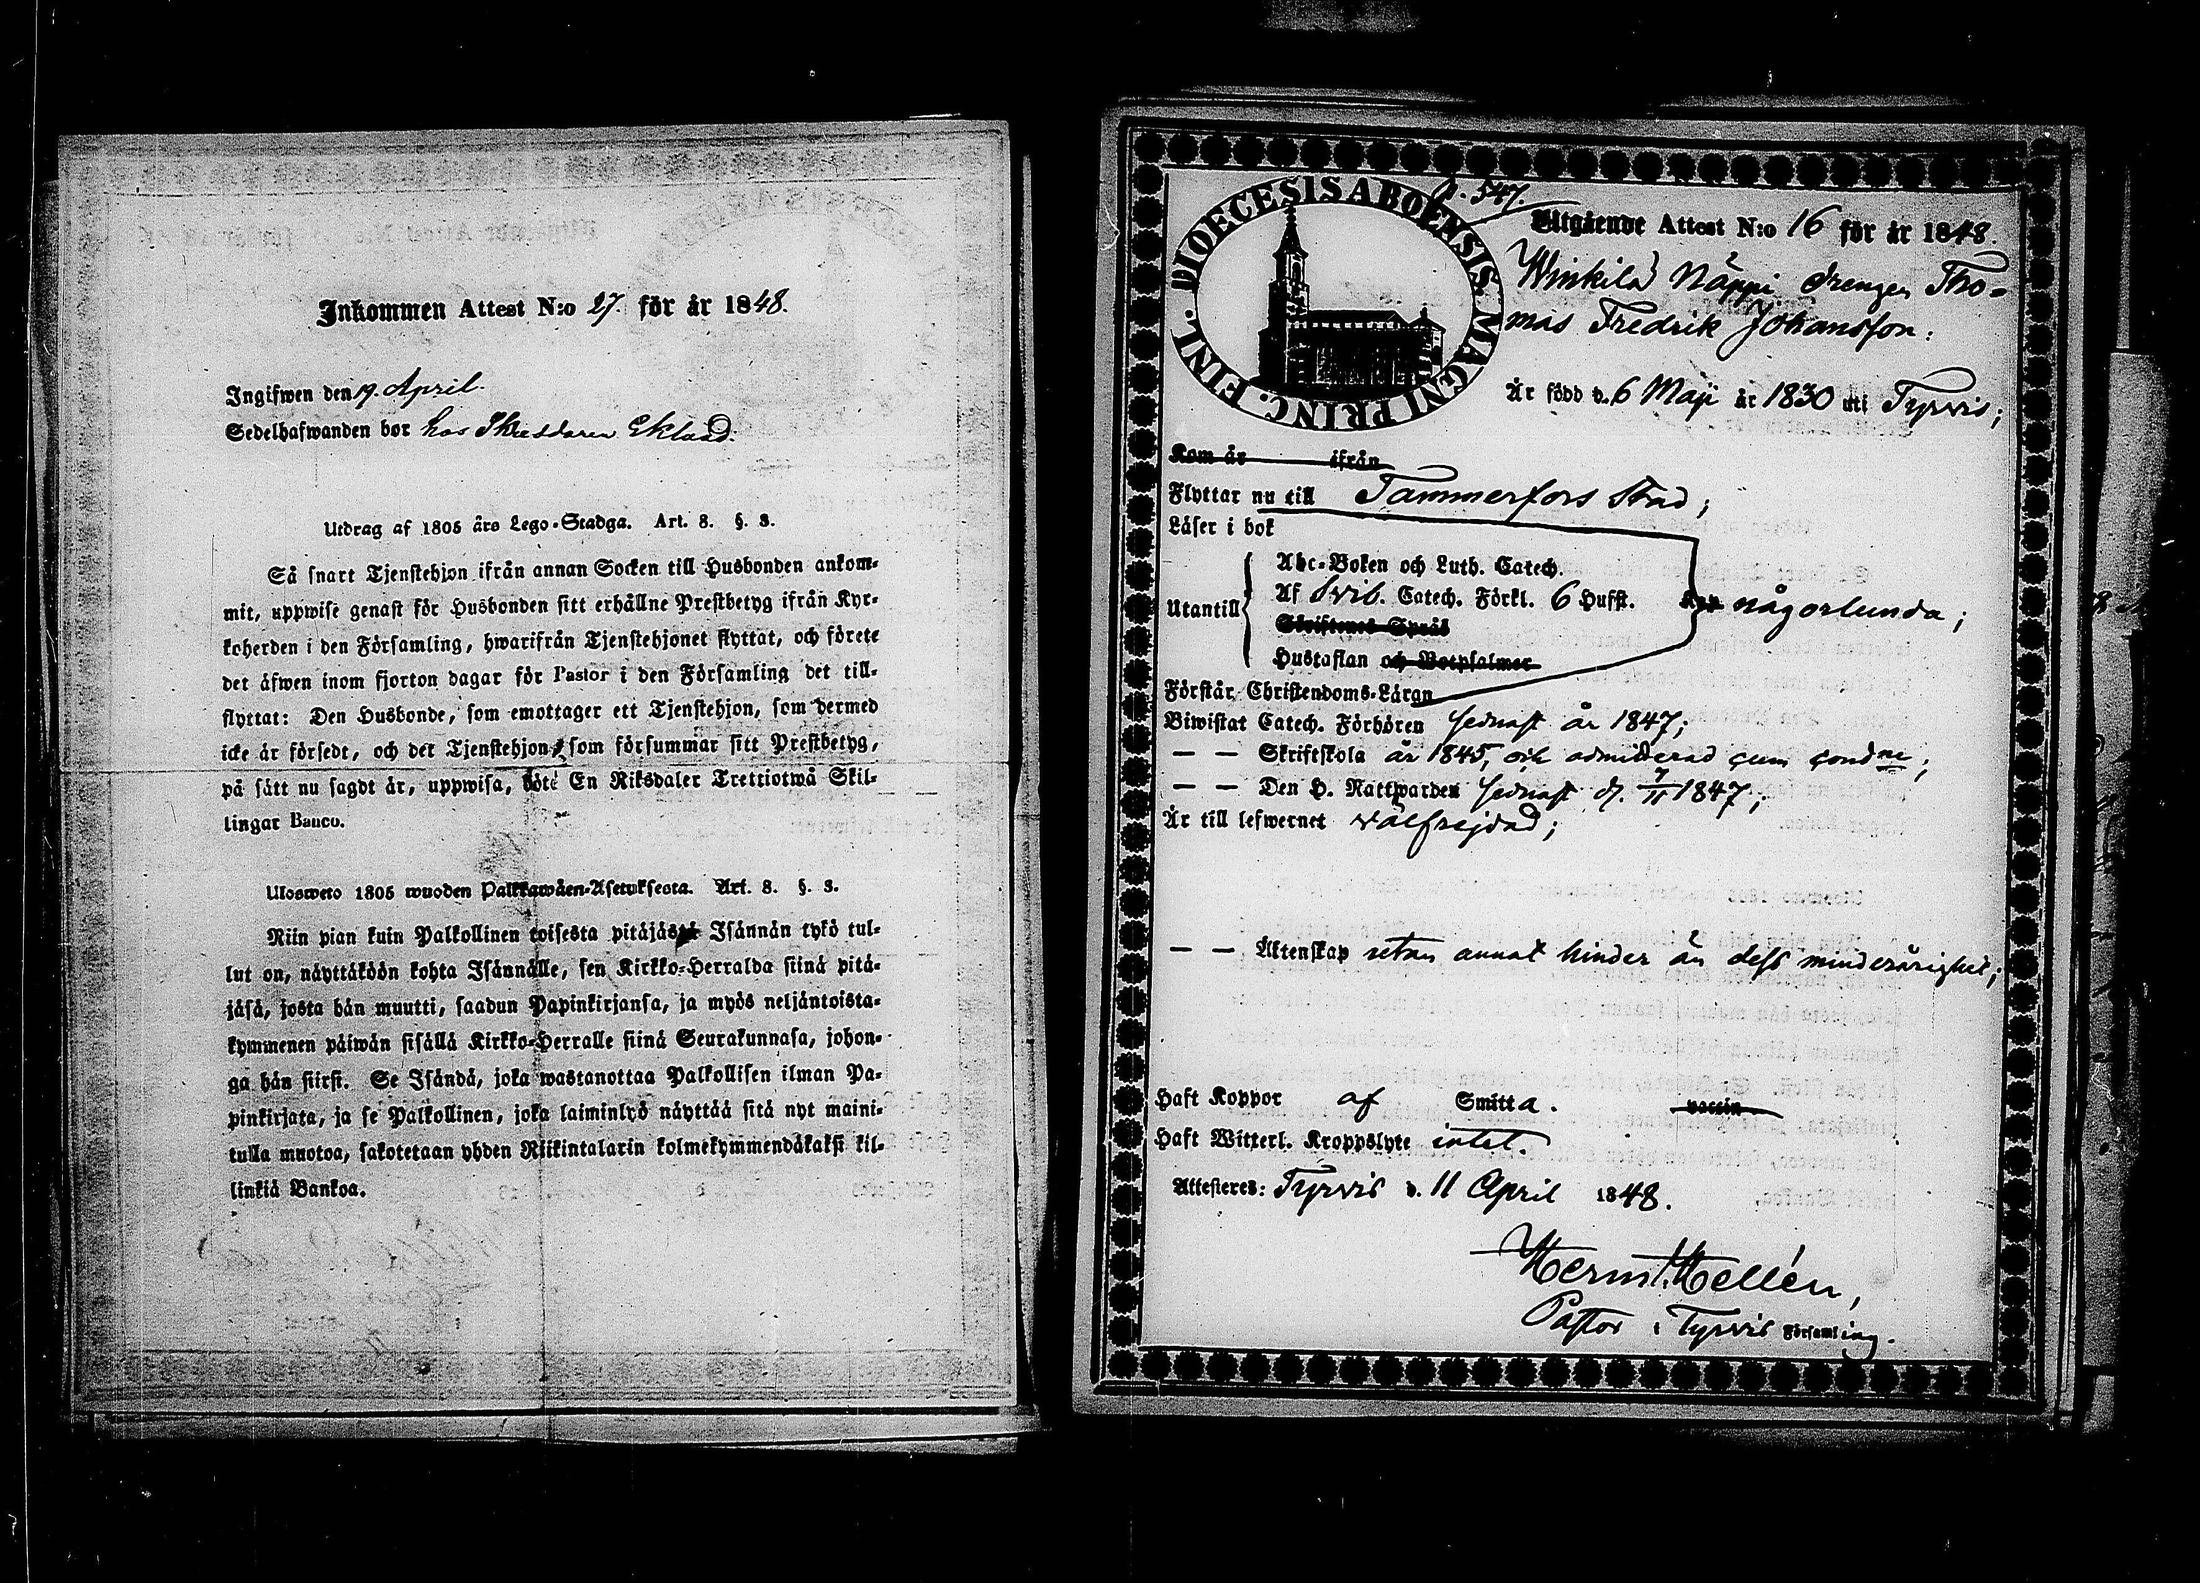 Inkommen Attest N:o 27. för år 1848.
Ingifwen den 19. April.
Sedelhafwanden bor hos Eklund.
Utdrag af 1805 års Lego-Stadga. Art. 8. §. 3.
Så snart Tjenstehjon ifrån annan Socken till Husbonden ankom-
mit, uppwise genast för Husbonden sitt erhållne Prestbetyg ifrån Kyr-
koherden i den Församling, hwarifrån Tjenstehjonet flyttat, och förete
det äfwen inom fjorton dagar för Pastor i den Församling det till-
flyttat: Den Husbonde, som emottager ett Tjenstehjon, som dermed
icke är försedt, och det Tjenstehjon, som försummar sitt Prestbetyg,
på sätt nu sagdt är, uppwisa, böte En Riksdaler Trettiotwå Skil-
lingar Banco.
Ulosweto 1805 wuoden Palkkawäen-Asetuksesta. Art. 8. §. 3.
Niin pian kuin Palkollinen toisesta pitäjästä Isännän tykö tul-
lut on, näyttäköön kohta Isännälle, sen Kirkko-Herralda siinä pitä-
jäsä, josta hän muutti, saadun Papinkirjansa, ja myös neljäntoista-
kymmenen päiwän sisällä Kirkko-Herralle siinä Seurakunnasa, johon-
ga hän siirsi. Se Isändä, joka wastanottaa Palkollisen ilman Pa-
pinkirjata, ja se Palkollinen, joka laiminlyö näyttää sitä nyt maini-
tulla muotoa, sakotetaan yhden Riikintalarin kolmekymmendäkaksi kil-
linkiä Bankoa.
p. 547.
DIOECESIS ABOENSIS. MAGNI PRINC. FINL.
Utgående Attest N:o 16 för år 1848.
Winkilä Näppi drengen Tho-
mas Fredrik Johansson:
Är född d. 6 Maji år 1830 uti Tyrvis;
Kom år ifrån
Flyttar nu till Tammerfors Stad;
Läser i bok
Abc-Boken och Luth. Catech.
Utantill Af Svib. Catech. Förkl. 6 Hufst. någorlunda;
Skriftenes Språk
Hustaflan och Botpsalmer
Förstår Christendoms-Läran
Biwistat Catech. Förhören sednast år 1847;
— — Skriftskola år 1845, och admitterad cum cond<u>ne</u>;
— — Den H. Nattwarden sednast d. 7/11 1847;
Är till lefwernet välfrejdad;
— — Äktenskap utan annat hinder än dess minderårighet;
Haft Koppor af Smitta. vaccin
Haft Witterl. Kroppslyte intet.
Attesteres: Tyrvis d. 11 April 1848.
Herm. Hellén,
Pastor i Tyrvis Församling.